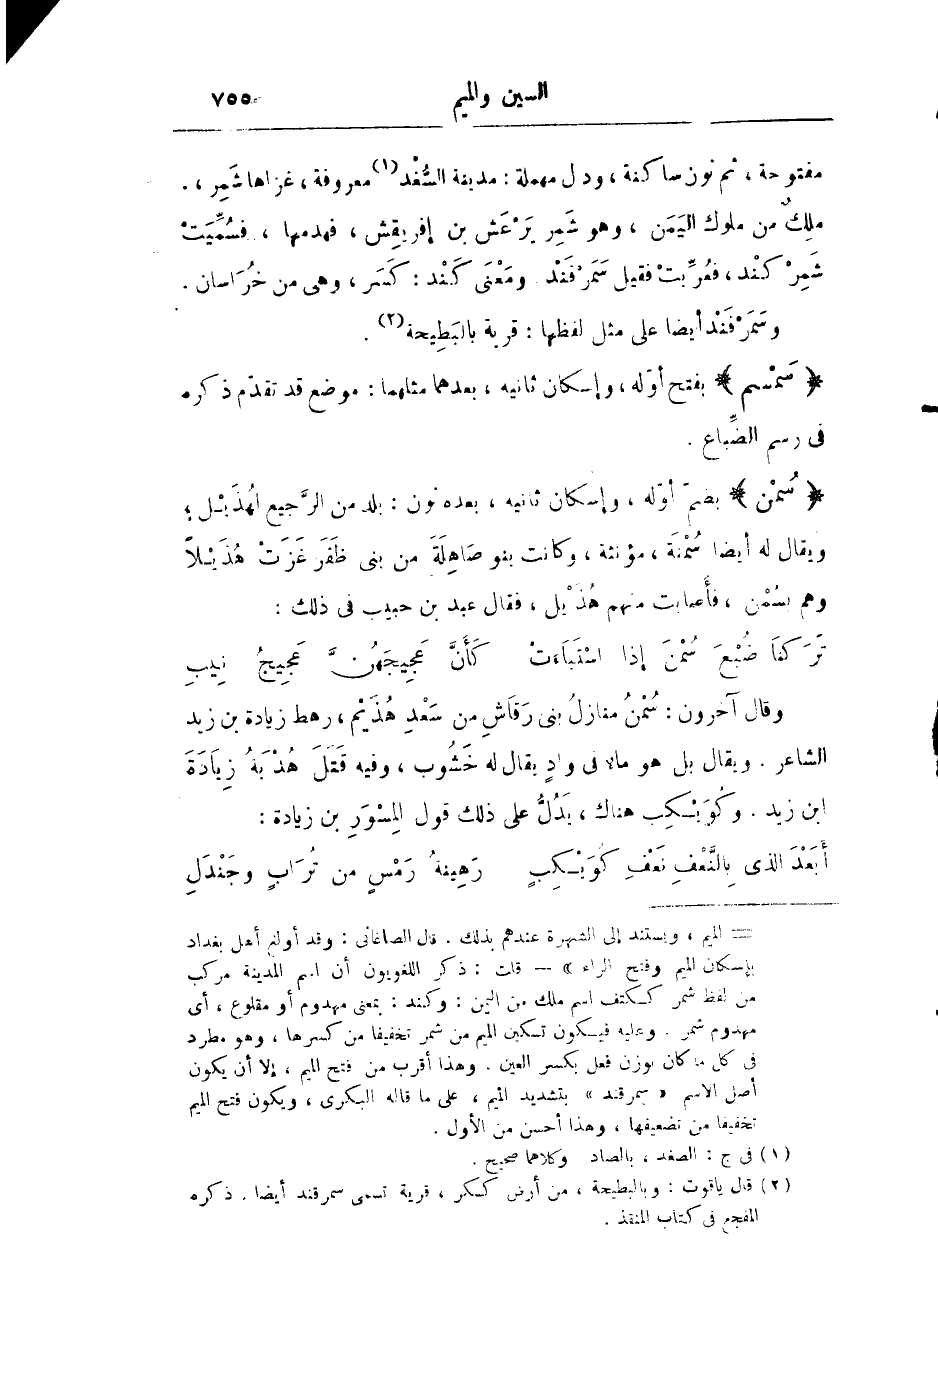 السين والميم ٧٥٥
مفتوحة ، ثم نون ساكنة ، ودال مهملة : مدينة السُّغْد(١) معروفة ، غزاها شَمِر ، .
ملِكٌ من ملوك اليَمَن ، وهو شَمِر يَرْعَش بن إفريقِش ، فهدمها ، فسُمِّيَتْ
شَمِرْ كَنْد ، فعُرِّبتْ فقيل سَمَرْقَنْد . ومَعْنَى كَنْد : كَسَر ، وهى من خُرَاسان .
وسَمَرْقَنْد أيضا على مثل لفظها : قرية بالبَطِيحة(٢) .
﴿ سَمْسَم ﴾ بفتح أوّله ، وإسكان ثانيه ، بعدهما مثلهما : موضع قد تقدّم ذكره
فى رسم الضِّباع .
﴿ سُمْن ﴾ بضمّ أوّله ، وإسكان ثانيه ، بعده نون : بلد من الرَّجيع لهُذَيْل ؛
ويقال له أيضا سُمْنَة ، مؤنثة ، وكانت بنو صَاهِلَةَ من بنى ظَفَرَ غَزَتْ هُذَيْلاً
وهم بسُمْن ، فأُصابت منهم هُذَيْل ، فقال عبد بن حبيب فى ذلك :
تَرَكنَا ضُبْعَ سُمْنَ إذا اسْتَبَاءَتْ كَأَنَّ عَجِيجَهُنَّ عَجِيجُ نِيبِ
وقال آخرون : سُمْنُ منازلُ بنى رَقَاشِ من سَعْدِ هُذَيْم ، رهط زيادة بن زيد
الشاعر . ويقال بل هو مالا فى وادٍ يقال له خَشُوب ، وفيه قَتَلَ هُدْبَةُ زِيَادَةَ
ابن زيد . وكُوَيْكِب هناك ، يَدُلُّ على ذلك قول المِسْوَرِ بن زيادة :
أَبَعْدَ الذى بِالنَّعْفِ نَعْفِ كُوَيْكِبٍ رَهِينةُ رَمْسٍ من تُرَابٍ وجَنْدَلِ
= الميم ، ويستند إلى الشهرة عندهم بذلك . قال الصاغانى : وقد أولع أهل بغداد
بإسكان الميم وفتح الراء » — قلت : ذكر اللغويون أن اسم المدينة مركب
من لفظ شمر ككتف اسم ملك من اليمن : وكند : بمعنى مهدوم أو مقلوع ، أى
مهدوم شمر . وعليه فيكون تسكين الميم من شمر تخفيفا من كسرها ، وهو مطرد
فى كل ما كان بوزن فعل بكسر العين . وهذا أقرب من فتح الميم ، إلا أن يكون
أصل الاسم « سمرقند » بتشديد الميم ، على ما قاله البكرى ، ويكون فتح الميم
تخفيفا من تضعيفها ، وهذا أحسن من الأول .
(١) فى ج : الصغد ، بالصاد وكلاهما صحيح .
(٢) قال ياقوت : وبالبطيحة ، من أرض كسكر ، قرية تسمى سمرقند أيضا . ذكره
المفجع فى كتاب المنقذ .